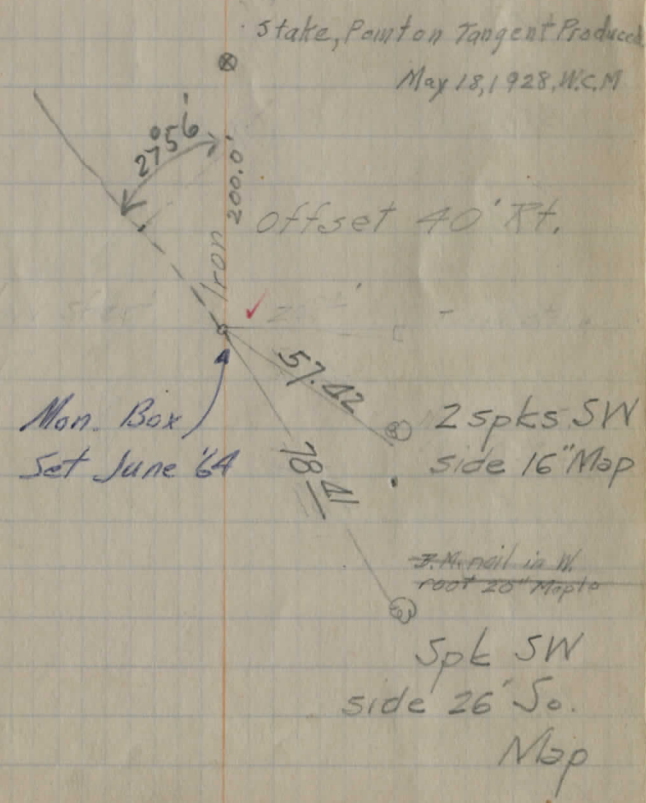 Stake, Point on Tangent Produced
May 18, 1928, W.C.M
27°56'
200.0'
Iron
offset 40' Rt.
57.42
Mon. Box
Set June '64
2 spks SW
side 16" Map
78 41
nail in W.
root 20" Maple
Spk SW
side 26' So.
Map